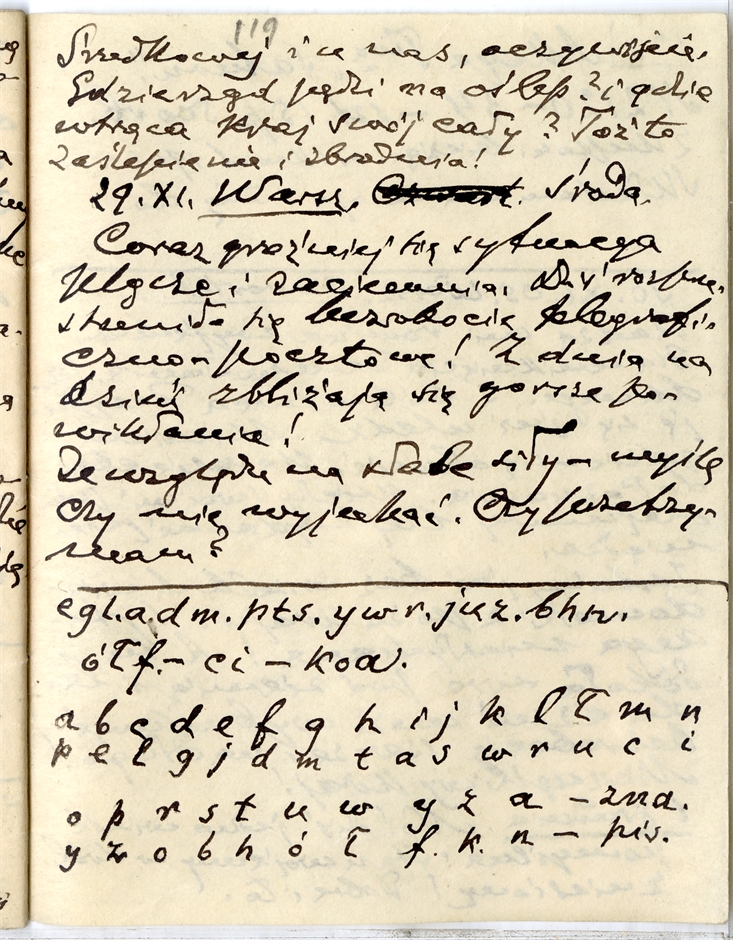 119
Środkowej i u nas, oczywiście.
Gdzie rząd pędzi na oślep? i gdzie
wtrąca kraj swój cały? Toż to
zaślepienie i zbrodnia!
29.XI. Warsz. Czwart. Środa.
Coraz groźniej się sytuacja
plącze i zaciemnia. Dziś rozprze-
strzeniło się bezrobocie telegrafi-
czno-pocztowe! Z dnia na
dzień zbliżają się gorsze po-
wikłania!
Ze względu na słabe siły – myślę
czy nie wyjechać. Czy przetrzy-
mam?
egl.a.dm.pts.ywr.juz.bhn.
ółf.– ci – koa.
a b c d e f g h i j k l ł m n
p e l g j d m t a s w r u c i
o p r s t u w y z a – zna.
y z o b h ó ł f. k. n – pis.